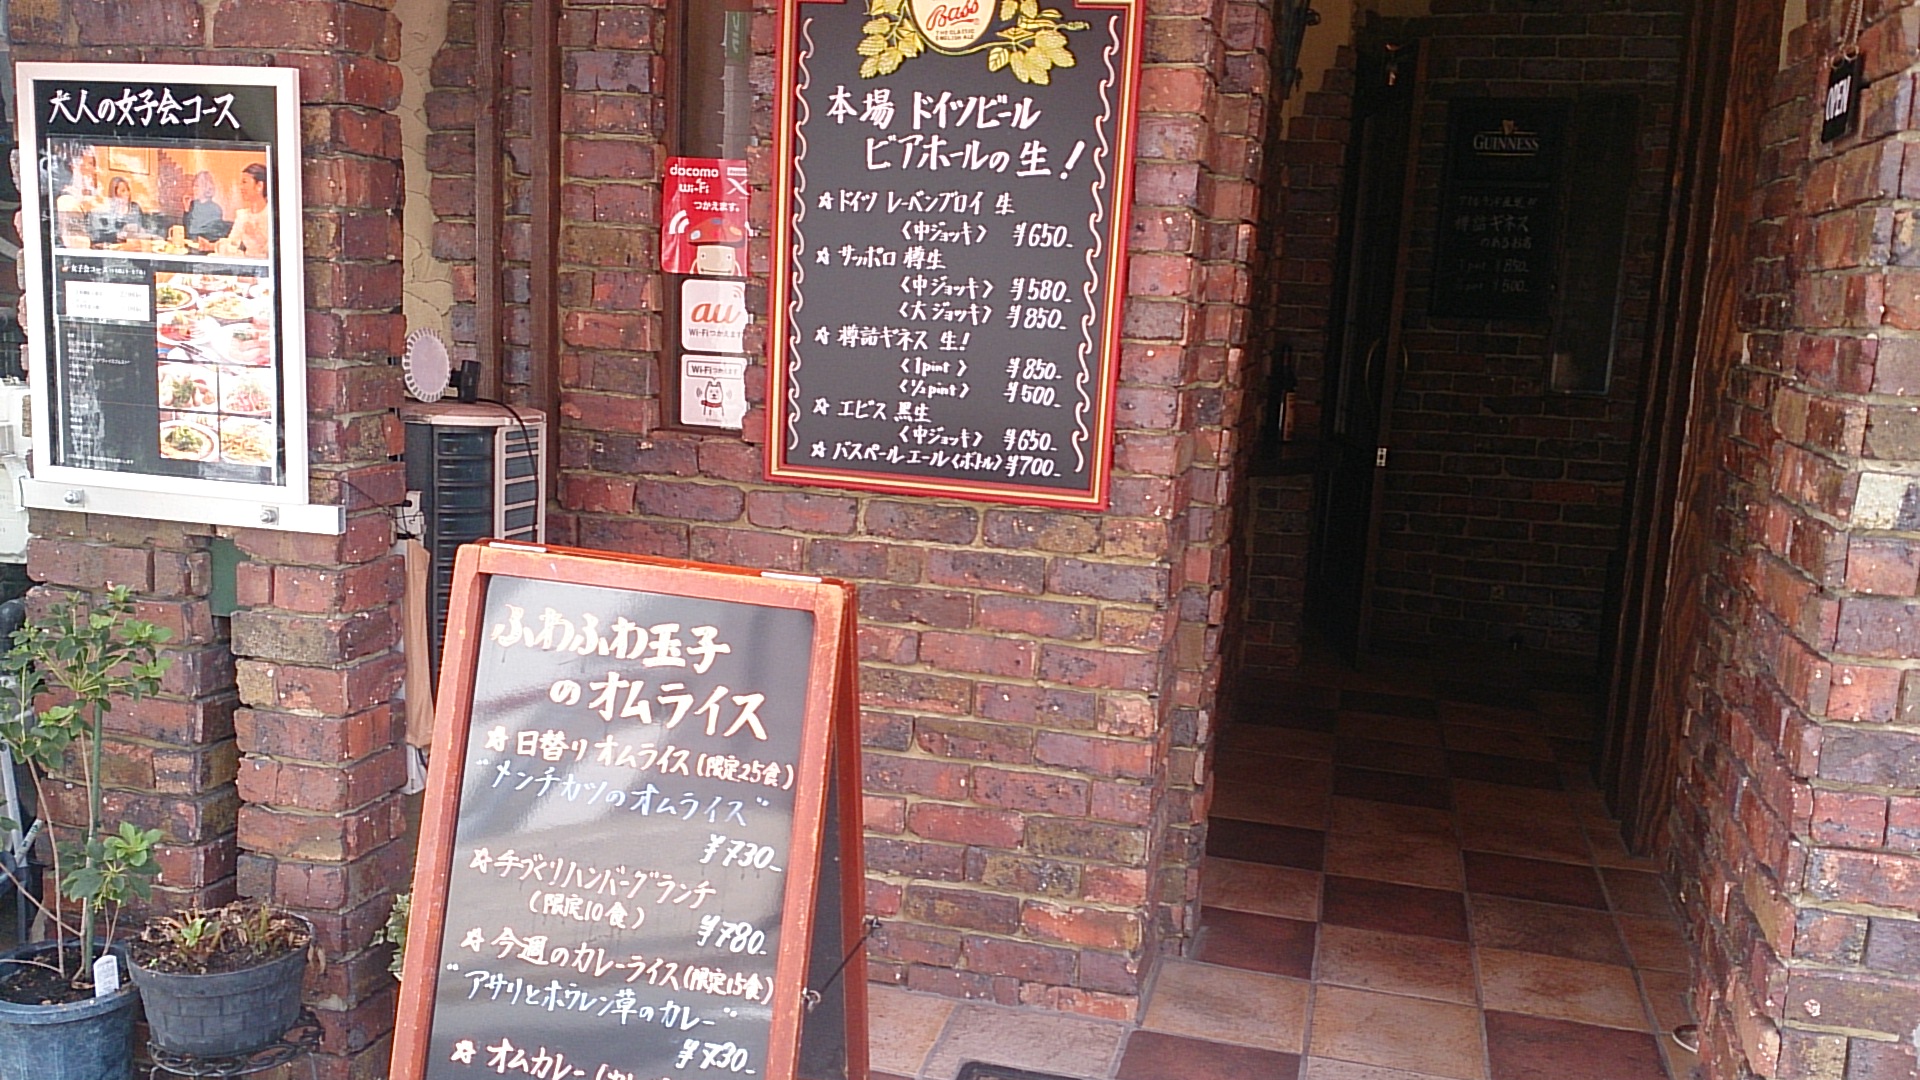 大人の女子会コース
docomo
Wi-Fi
つかえます。
au
Wi-Fiつかえます
Wi-Fiつかえます
Bass
THE CLASSIC
ENGLISH ALE
本場 ドイツビール
ビアホールの生!
☆ドイツ レーベンブロイ 生
〈中ジョッキ〉 ¥650-
☆サッポロ 樽生
〈中ジョッキ〉 ¥580-
〈大ジョッキ〉 ¥850-
☆樽詰ギネス 生!
〈1pint〉 ¥850-
〈½pint〉 ¥500-
☆エビス 黒生
〈中ジョッキ〉 ¥650-
☆バスペールエール〈ボトル〉¥700-
GUINNESS
樽詰ギネス
のあるお店
OPEN
ふわふわ玉子
のオムライス
☆日替りオムライス(限定25食)
"メンチカツのオムライス"
¥730-
☆手づくりハンバーグランチ
(限定10食)
¥780-
☆今週のカレーライス(限定15食)
"アサリとホウレン草のカレー"
¥730-
☆オムカレー